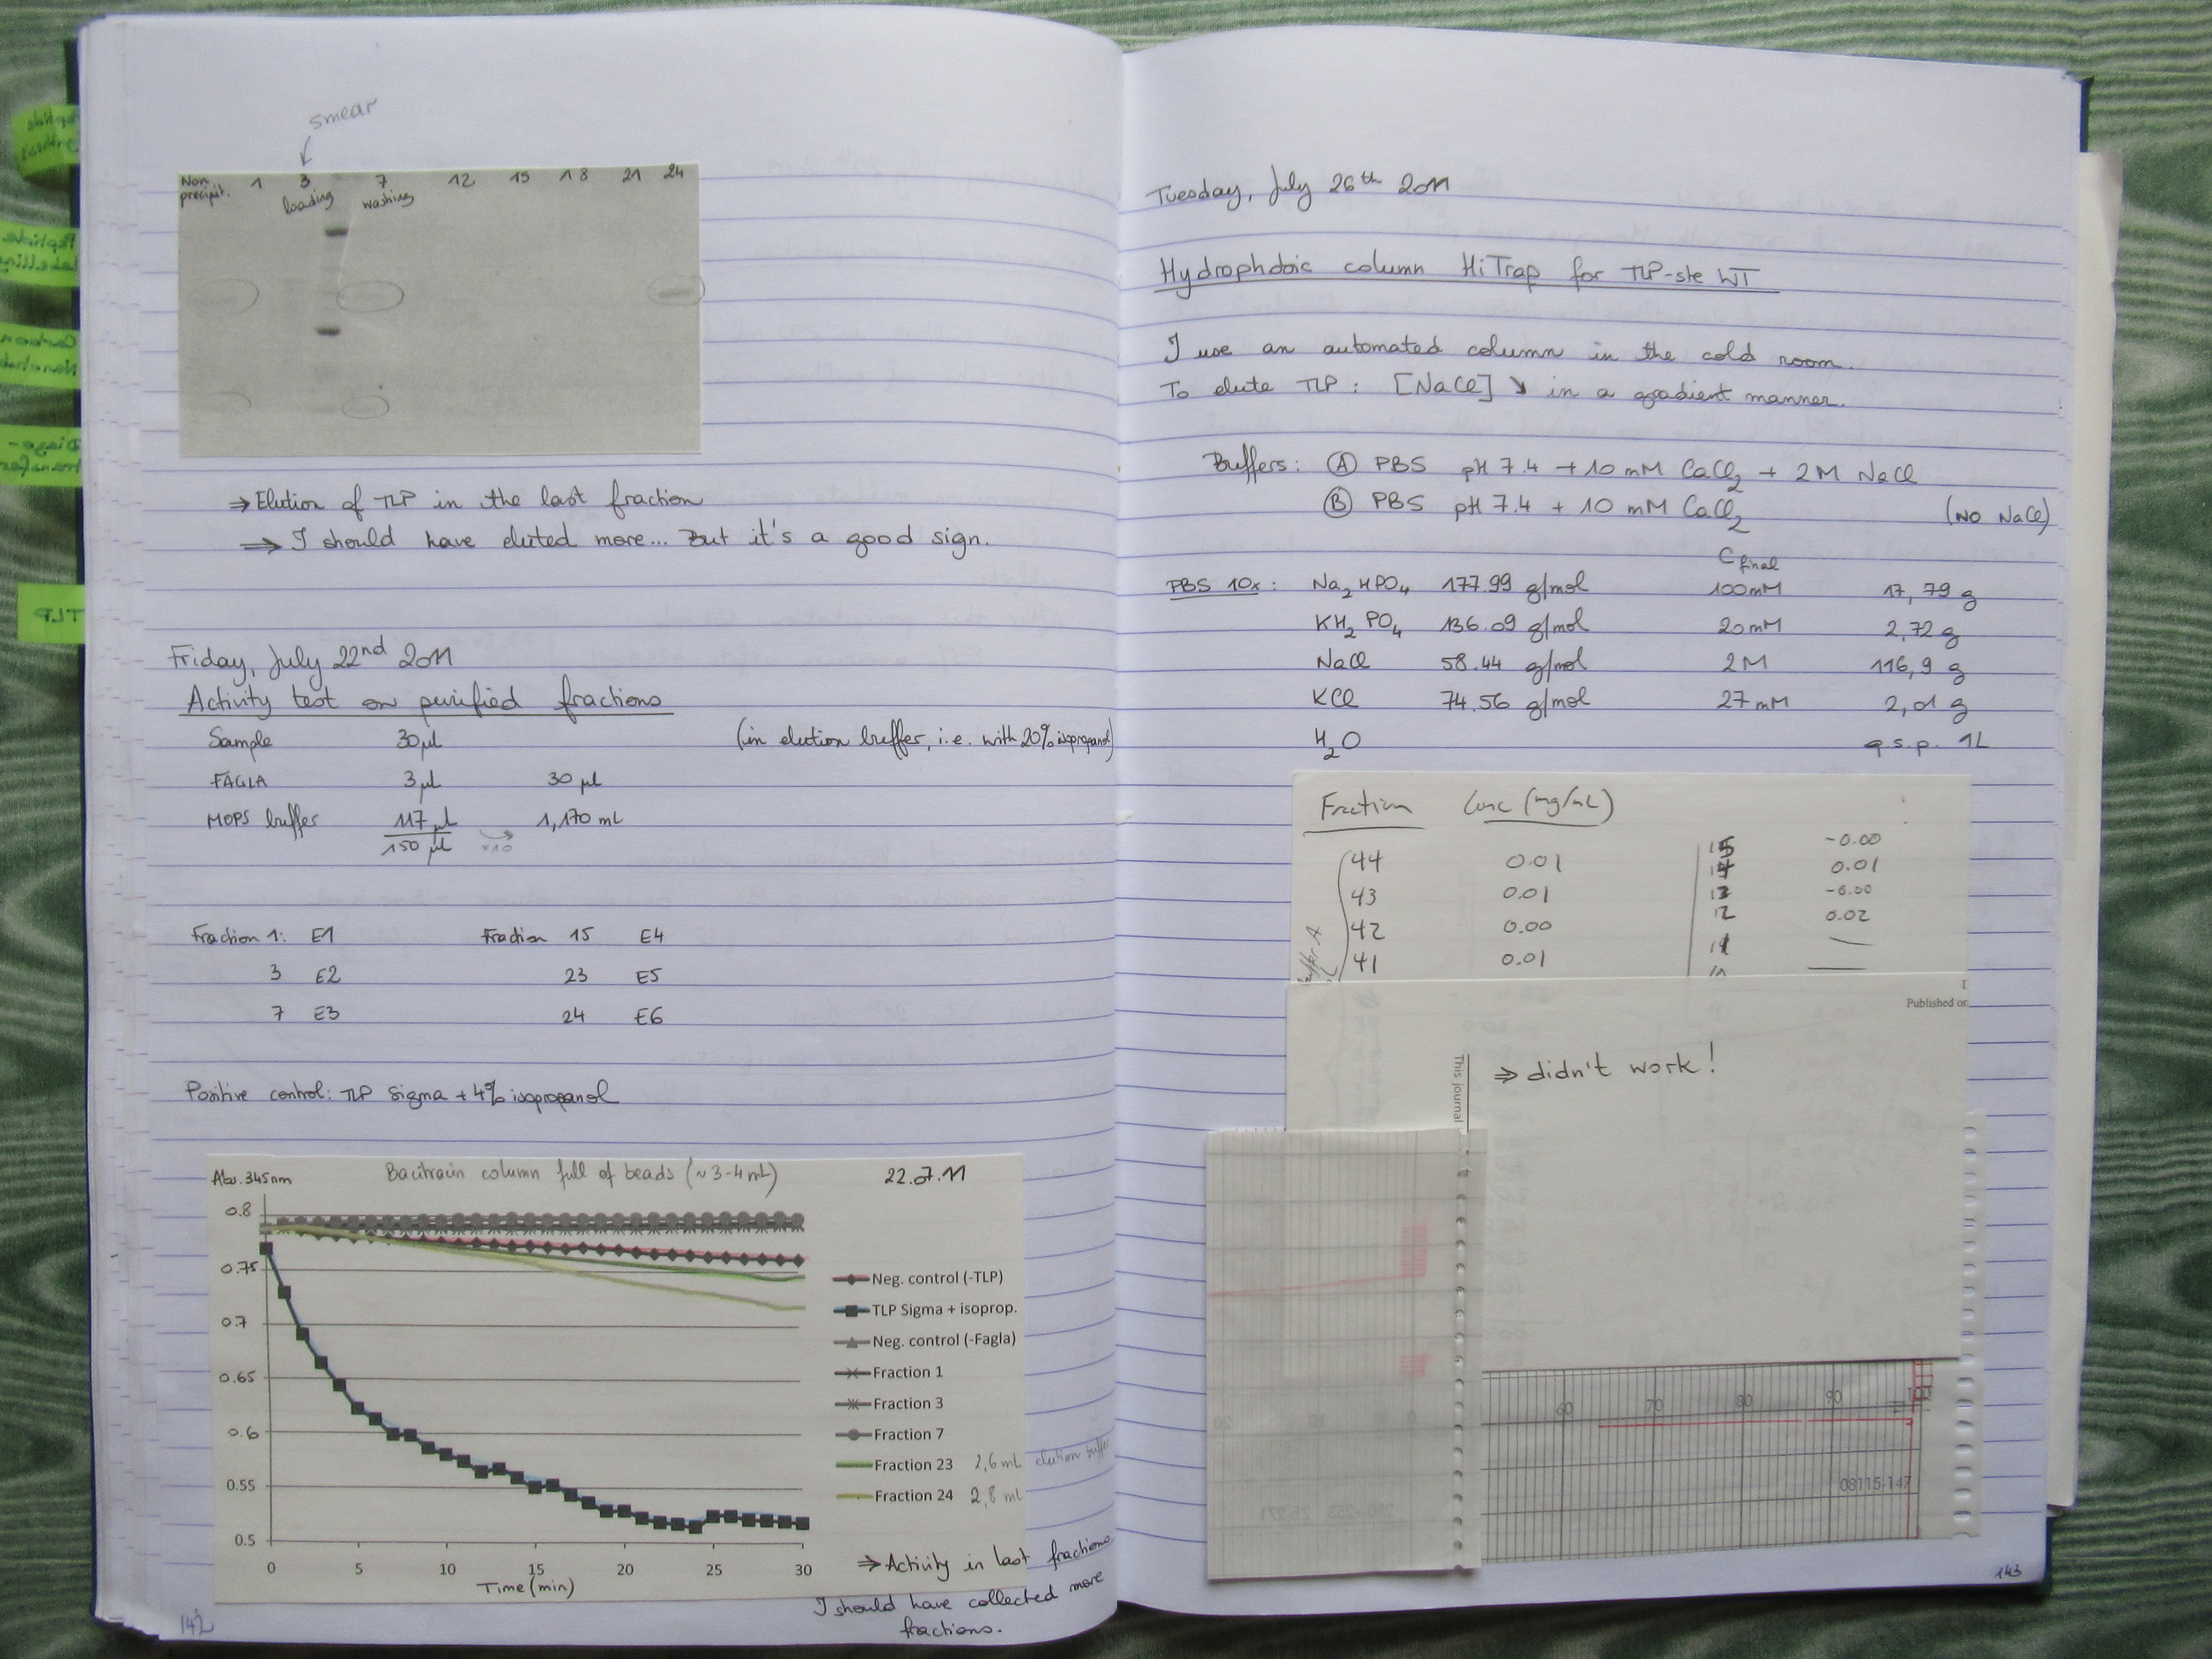 smear
Non precipit. 1 3 7 12 15 18 21 24
loading washing
⇒ Elution of TLP in the last fraction
⇒ I should have eluted more... But it's a good sign.
Friday, July 22nd 2011
Activity test on purified fractions
Sample 30 µl (in elution buffer, i.e. with 20% isopropanol)
FAGLA 3 µl 30 µl
MOPS buffer 117 µl 1,170 mL
150 µl x10
Fraction 1: E1 Fraction 15 E4
3 E2 23 E5
7 E3 24 E6
Positive control: TLP Sigma + 4% isopropanol
Abs. 345nm Bacitracin column full of beads (~3-4 mL) 22.07.11
0.8
0.75
0.7
0.65
0.6
0.55
0.5
0 5 10 15 20 25 30
Time (min)
Neg. control (-TLP)
TLP Sigma + isoprop.
Neg. control (-Fagla)
Fraction 1
Fraction 3
Fraction 7
Fraction 23 2,6 mL elution buffer
Fraction 24 2,8 mL
⇒ Activity in last fractions
I should have collected more
fractions.
142
Tuesday, July 26th 2011
Hydrophobic column HiTrap for TLP-ste WT
I use an automated column in the cold room.
To elute TLP: [NaCl] ↘ in a gradient manner.
Buffers: Ⓐ PBS pH 7.4 + 10 mM CaCl2 + 2M NaCl
Ⓑ PBS pH 7.4 + 10 mM CaCl2 (NO NaCl)
Cfinal
PBS 10x: Na2HPO4 177.99 g/mol 100mM 17,79 g
KH2PO4 136.09 g/mol 20mM 2,72 g
NaCl 58.44 g/mol 2M 116,9 g
KCl 74.56 g/mol 27mM 2,01 g
H2O q.s.p. 1L
Fraction Conc (mg/mL)
15 -0.00
44 0.01 14 0.01
43 0.01 13 -0.00
42 0.00 12 0.02
41 0.01 11 —
buffer A
Published on
This journal
⇒ didn't work!
60 70 80 90 100
08115-147
143
TLP
Peptide
Labelling
Carbon
Nanotubes
Diazo-
transfer